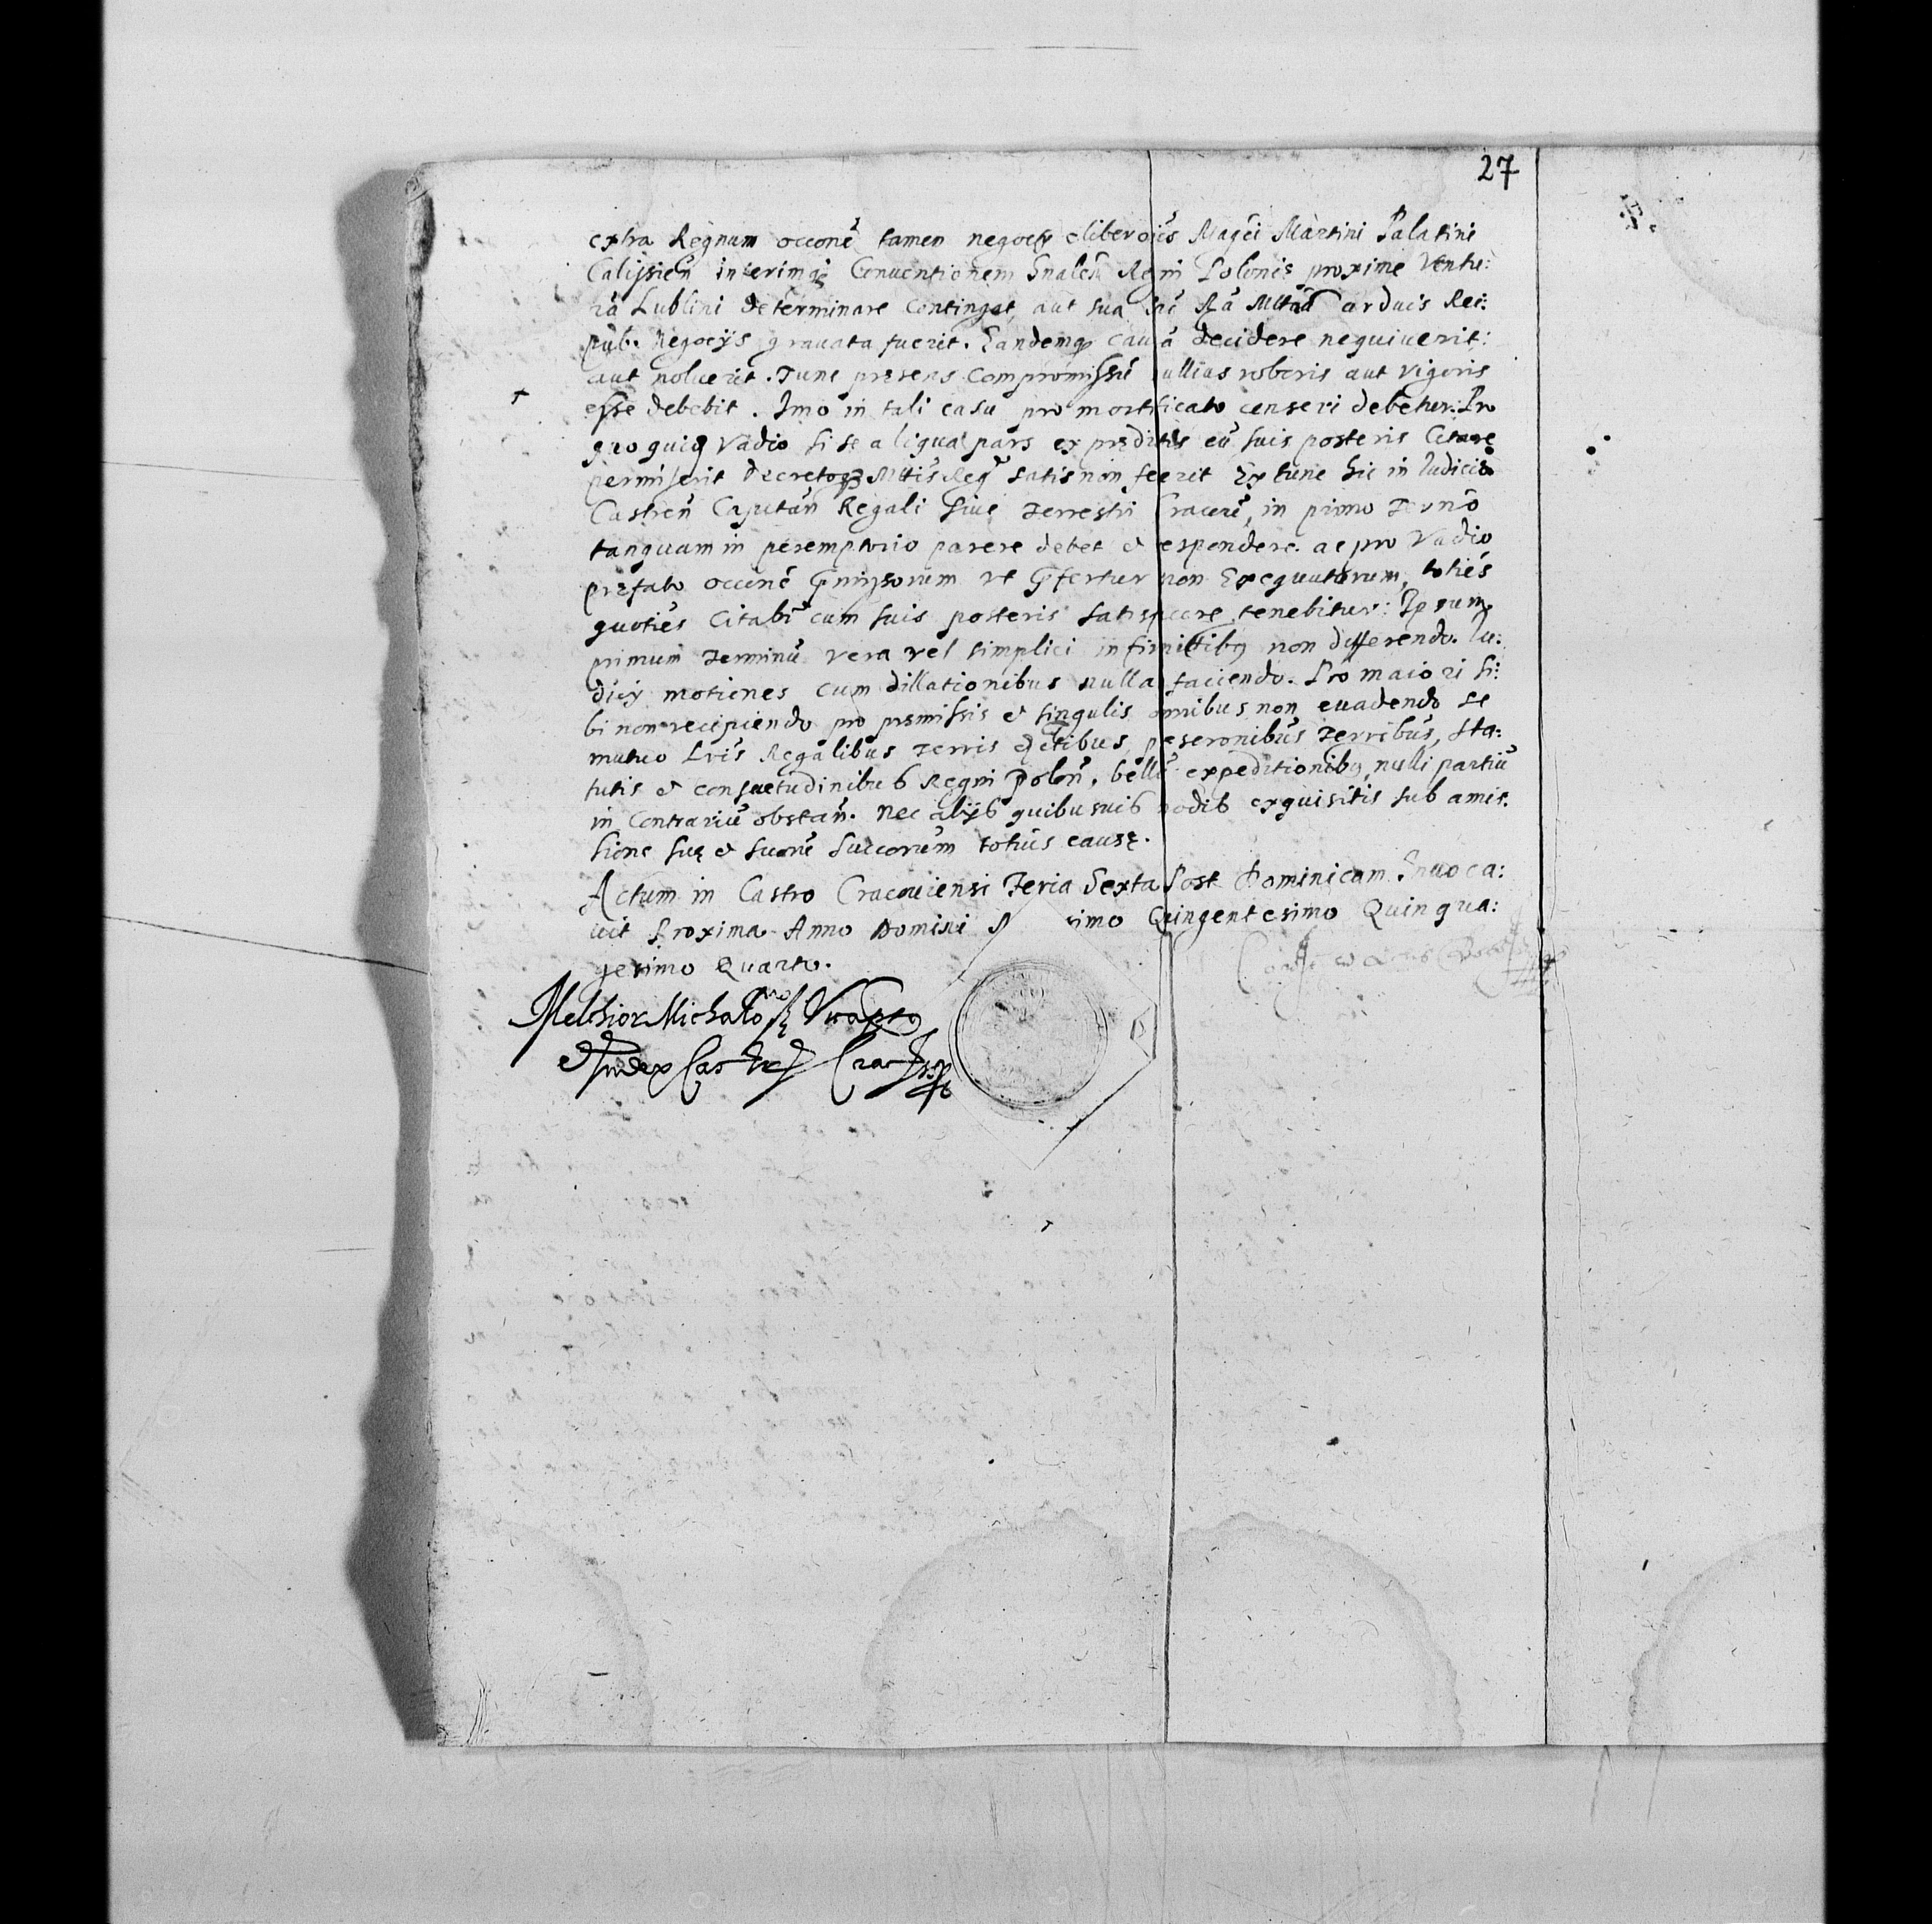 27
extra Regnum occone tamen negocy Magci Martini Palatini
Calissien interimq Conventionem Gnalem Regni Polonie proxime Ventu:
ra Lublini determinare Contingat, aut sua Sac Ra Mtas arduis Rei:
pub. Negocijs gravata fuerit. Eandemq causa decidere nequiverit:
aut noluerit. Tunc presens Compromissu nullius roboris aut vigoris
esse debebit. Imo in tali casu pro mortificato censeri debetur. Pro
quo quidem Vadio si se aliqua pars ex predictis cu suis posteris Citare
permiserit Decretoq Mtis Reg satis non fecerit Extunc hic in Iudicio
Castren Capitan Regali sive Terrestri Cracovien, in primo Termno
tanquam in peremptorio parere debet et respondere. ac pro Vadio
prefato occone pmissorum ut pfertur non Exequutorum, toties
quoties Citabr cum suis posteris satisfacere tenebitur: Ipsumq
primum Terminu vera vel simplici infirmitibq non differendo. Iu:
dicij motiones cum dillationibus nulla faciendo. Pro maiori si:
bi non recipiendo pro premissis et singulis omnibus non evadendo se
mutuo Lris Regalibus Terris Terribus, sta:
tutis et consuetudinibus Regni Polon. bellu expeditionibq, nulli partiu
in Contrariu obstan. Nec alijs quibusvis modis exquisitis sub amis:
sione sue et suorum Succorum totius cause.
Actum in Castro Cracoviensi Feria Sexta Post Dominicam Invoca:
vit Proxima Anno Domini simo Quingentesimo Quinqua:
gesimo Quarto.
Melchior Michałowsky Viceptq
et Judex Castren Crac